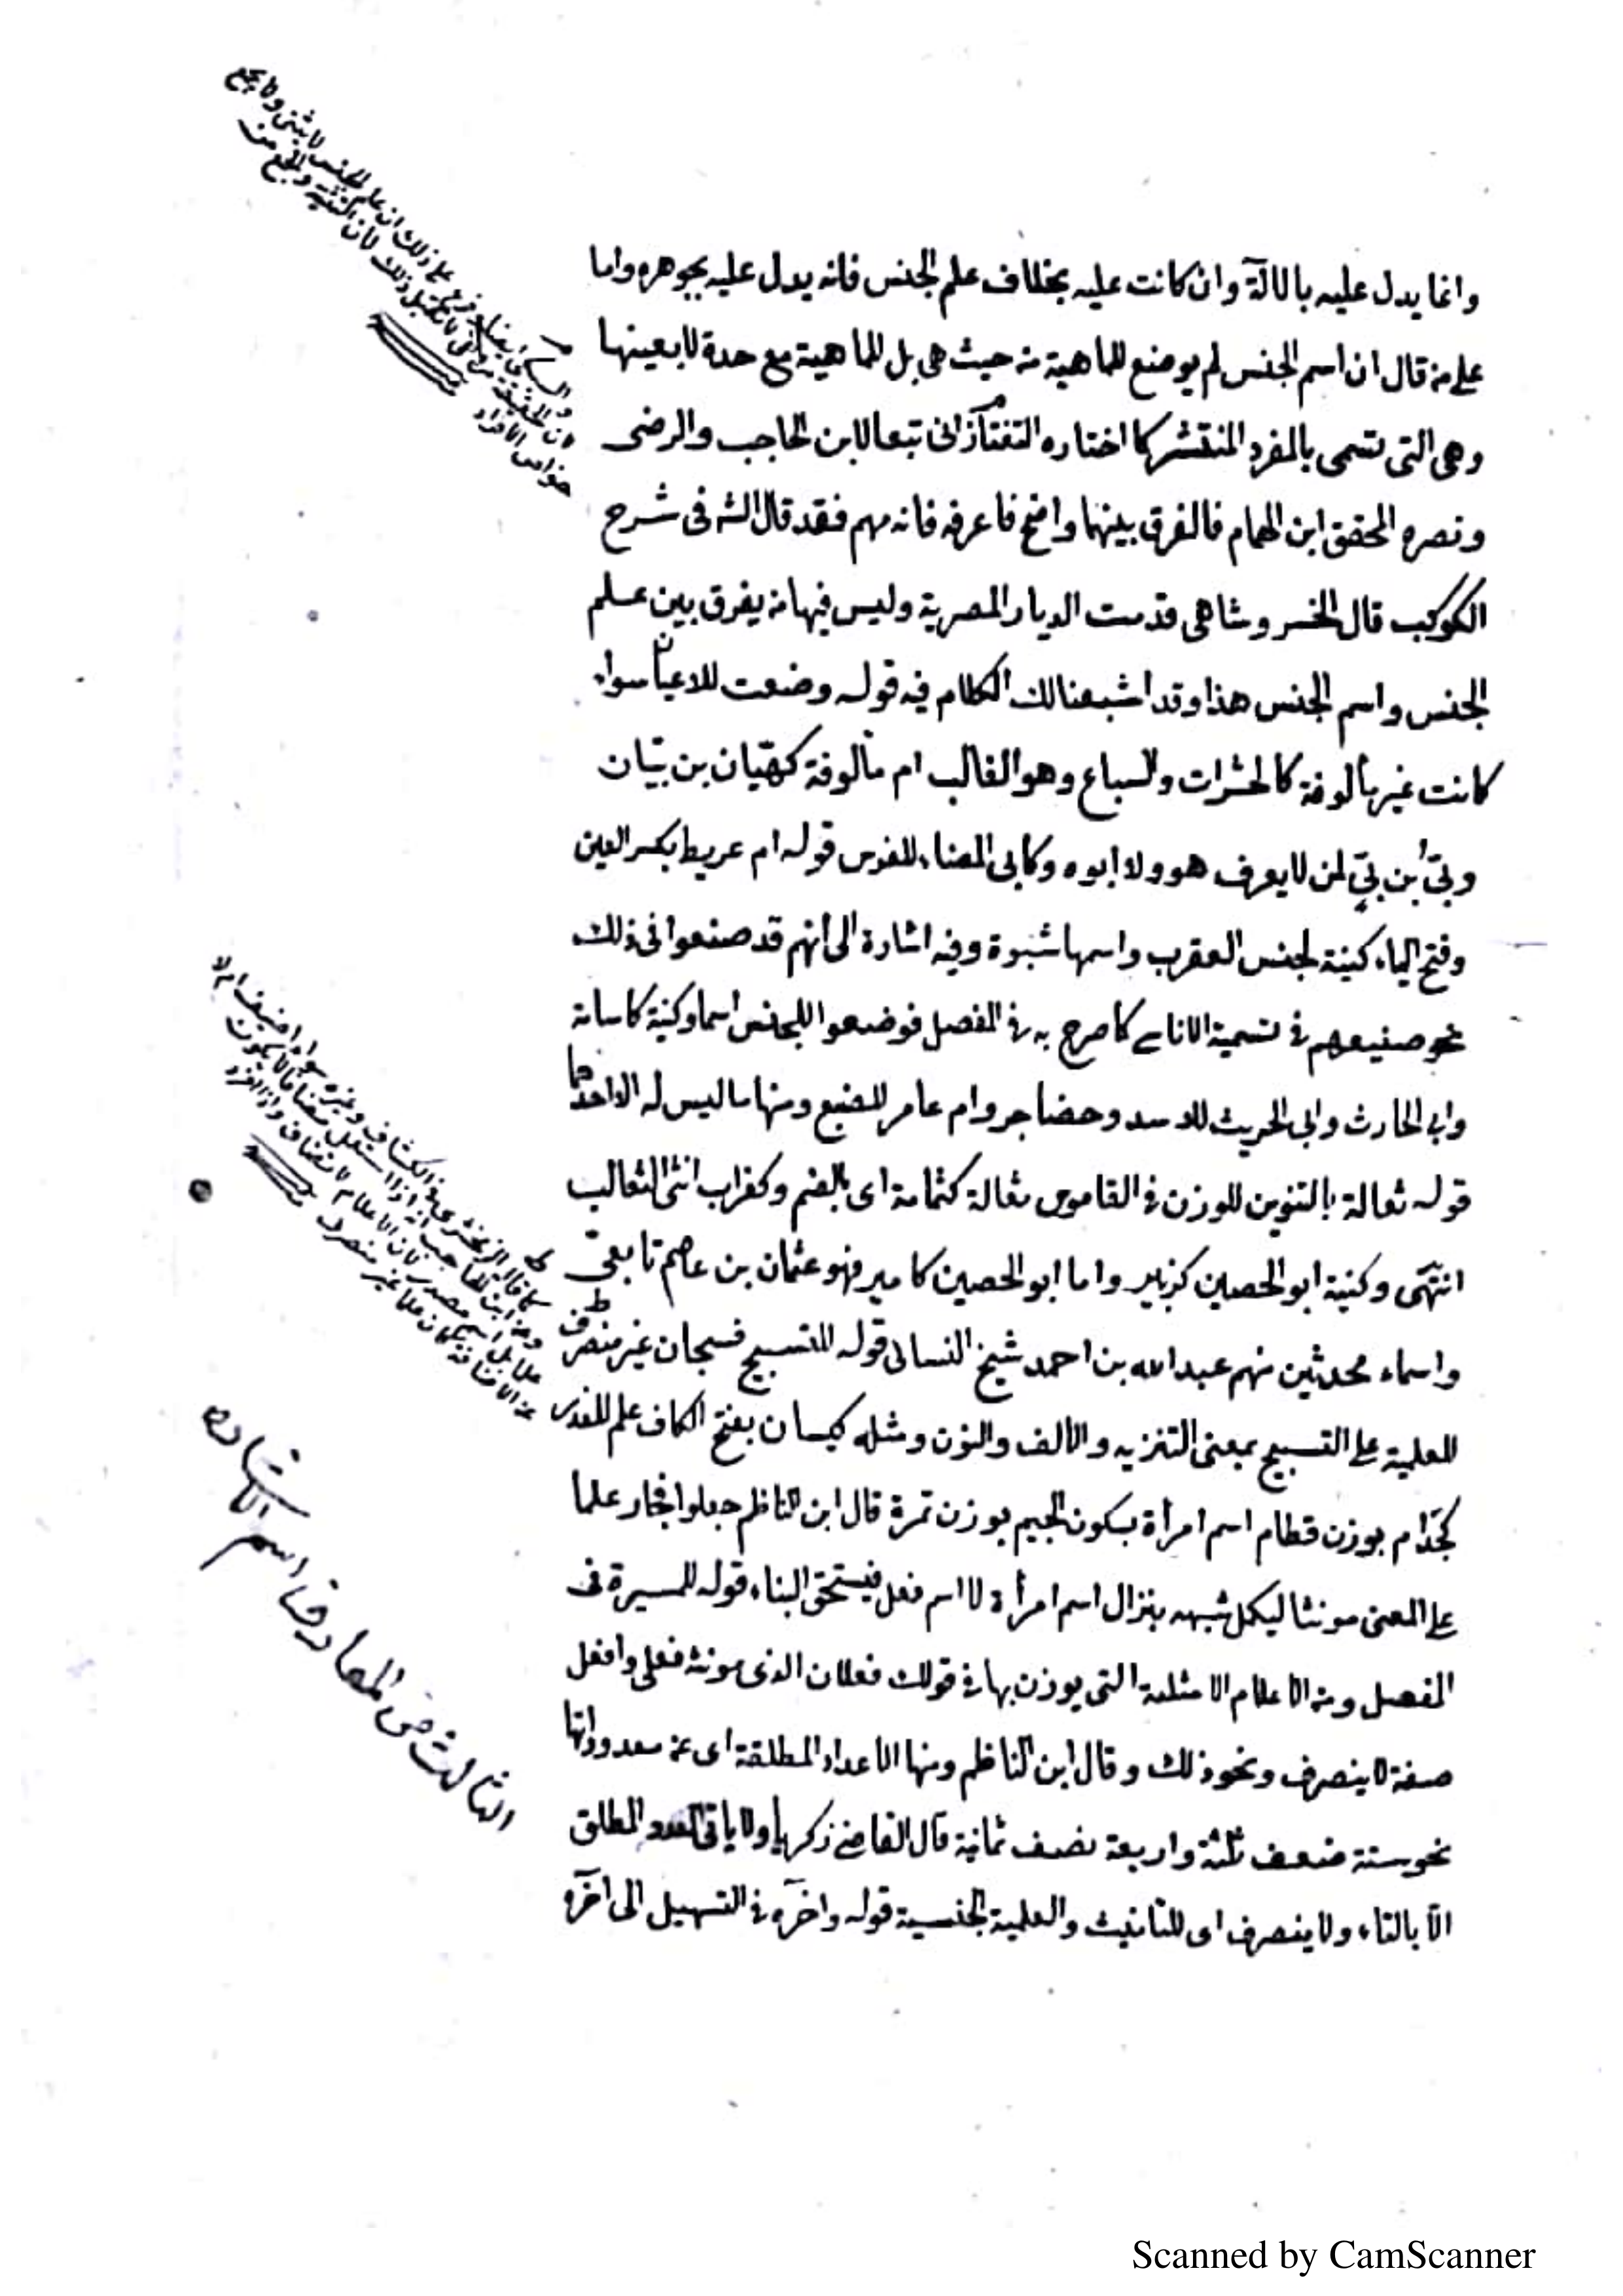 وانما يدل عليه بالالآلة وان كانت عليه بخلاف علم الجنس فانه يدل عليه بجوهره واما
على من قال ان اسم الجنس لم يوضع للماهية من حيث هي بل للماهية مع وحدة لا بعينها
وهي التي تسمى بالفرد المنتشر كما اختاره التفتازانى تبعا لابن الحاجب والرضى
ونصره المحقق ابن الهمام فالفرق بينهما واضح فاعرفه فانه مهم فقد قال الشه فى شرح
الكوكب قال الخسروشاهى قدمت الديار المصرية وليس فيها من يفرق بين علم
الجنس واسم الجنس هذا وقد اشبعنا لك الكلام فيه قوله وضعت للاعيان سواء
كانت غير مألوفة كالحشرات والسباع وهو الغالب ام مألوفة كهيّان بن بيّان
وبىّ بن بىّ لمن لا يعرف هو ولا ابوه وكابى المضاء للفرس قوله ام عريط بكسر العين
وفتح الياء كنية لجنس العقرب واسمها شبوة وفيه اشارة الى انهم قد صنعوا فى ذلك
نحو صنيعهم فى تسمية الاناسى كما صرح به فى المفصل فوضعوا للجنس اسما وكنية كاسامة
وابى الحارث وابى الحريث للاسد وحضاجر وام عامر للضبع ومنها ما ليس له الا احدهما
قوله ثعالة بالتنوين للوزن فى القاموس ثعالة كثمامة اى بالضم وكغراب انثى الثعالب
انتهى وكنية ابو الحصين كزبير واما ابو الحصين كامير فهو عثمان بن عاصم تابعىّ
واسماء محدثين منهم عبدالله بن احمد شيخ النسائى قوله التسبيح فسبحان غير منصرف
للعلمية على التسبيح بمعنى التنزيه والالف والنون ومثله كيسان بفتح الكاف علم للغدر
كجذام بوزن قطام اسم امرأة بسكون الجيم بوزن تمرة قال ابن الناظم جعلوا فجار علما
على المعنى مونثا ليكمل شبهه بنزال اسم امرأة لا اسم فعل فيستحق البناء قوله للمسيرة فى
المفصل ومن الاعلام الامثلة التى يوزن بها فى قولك فعلان الذى مونثه فعلى وافعل
صفة لا ينصرف ونحو ذلك وقال ابن الناظم ومنها الاعداد المطلقة اى عن معدوداتها
نحو ستة ضعف ثلثة واربعة نصف ثمانية قال القاضى زكريا ولا ياتى العدد المطلق
الا بالتاء ولا ينصرف اى للتانيث والعلمية الجنسية قوله واخره فى التسهيل الى اخره
على ذلك ان علم الجنس لا يثنى ولا يجمع
لان التثنية والجمع من
خواص الافراد
كما قال الزمخشرى فى الكشاف وغيره سواء اضيف ام لا
الثالث من المعارف اسم الاشارة
Scanned by CamScanner